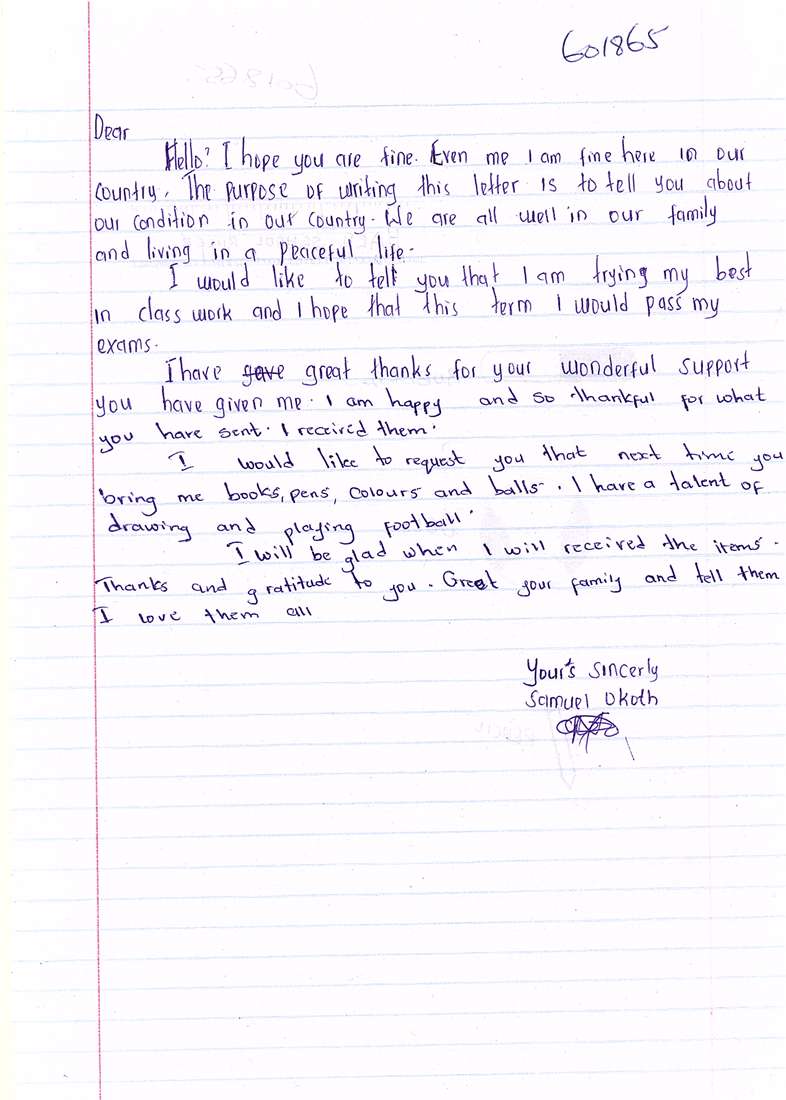 601865
Dear
Hello? I hope you are fine. Even me I am fine here in our
country. The purpose of writing this letter is to tell you about
our condition in our country. We are all well in our family
and living in a peaceful life.
I would like to tell you that I am trying my best
in class work and I hope that this term I would pass my
exams.
I have gave great thanks for your wonderful support
you have given me. I am happy and so thankful for what
you have sent. I received them.
I would like to request you that next time you
bring me books, pens, colours and balls. I have a talent of
drawing and playing football.
I will be glad when I will received the items.
Thanks and gratitude to you. Greet your family and tell them
I love them all
Your's sincerly
Samuel Okoth